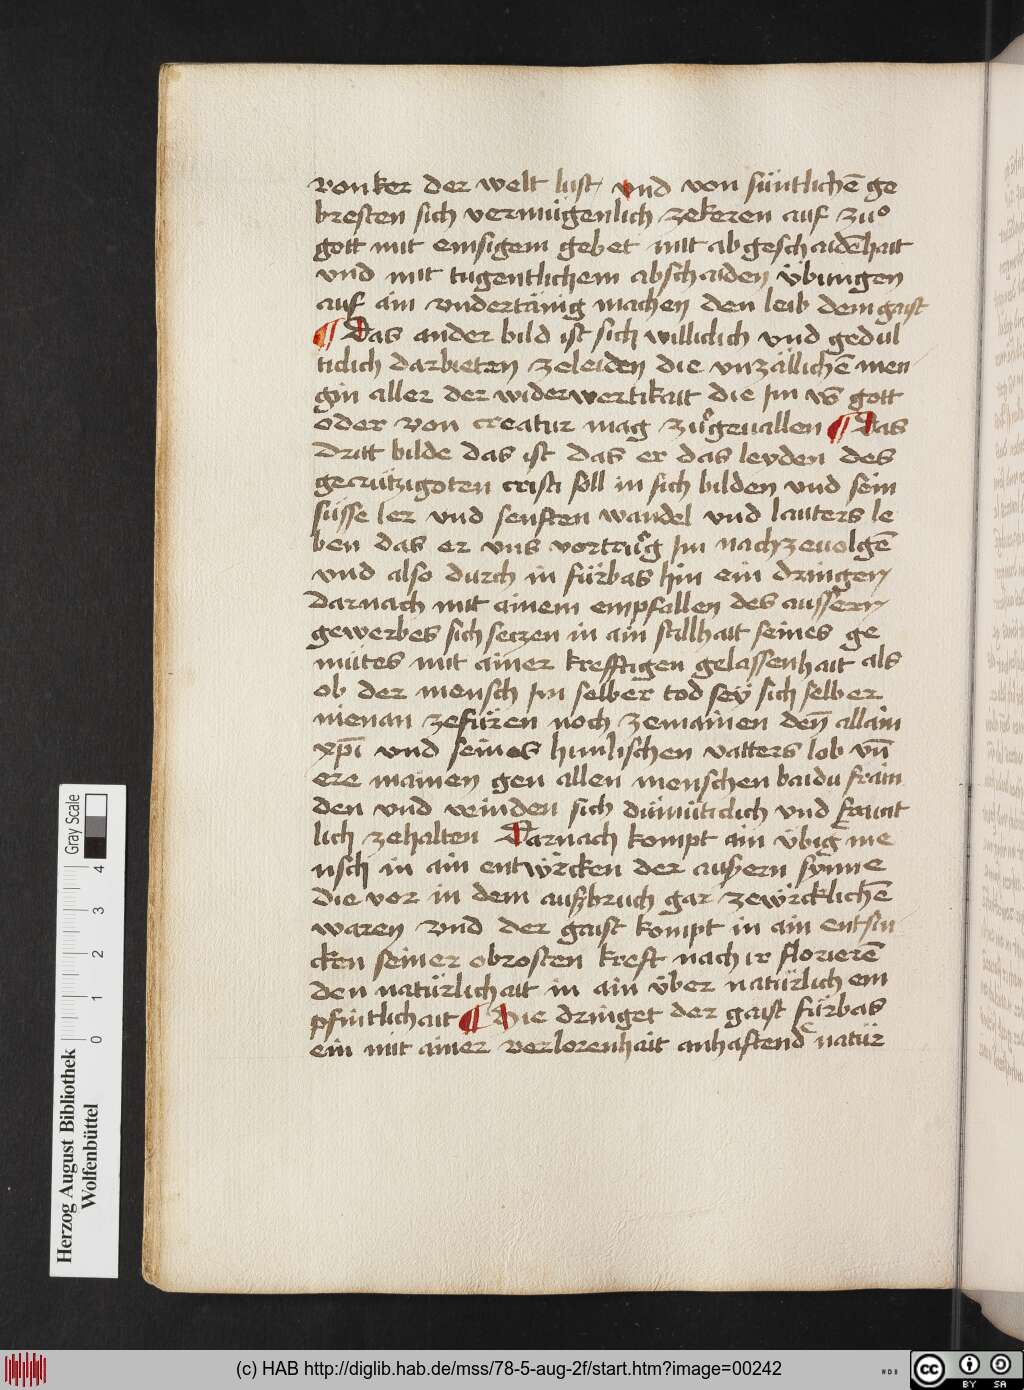 von ker der welt lust vnd von süntlichē ge
bresten sich vermügenlich zekeren auf zuͦ
gott mit emsigem gebet mit abgeschaidēhait
vnd mit tugentlichem abschaiden übungen
auf ain vndertänig machen den leib dem gaist
¶ Das ander bild ist sich williclich vnd gedul
ticlich darbieten zeleiden die vnzällichē men
gin aller der widerwertikait die Im vō gott
oder von creatur mag zuͦgeuallen ¶ Das
dritt bilde das ist das er das leyden des
gecrützigoten cristi soll in sich bilden vnd sein
süsse ler vnd senften wandel vnd lauters le
ben das er vns vortruͦg Im nachzeuolgē
vnd also durch in fürbas hin ein dringen
Darnach mit ainem empfallen des aussern
gewerbes sich seczen in ain stillhait seines ge
mütes mit ainer krefftigen gelassenhait als
ob der mensch Im selber tod seÿ sich selber
nienan zefüren noch zemainen deñ allain
xp̄i vnd seines himlischen vatters lob vñ
ere mainen gen allen menschen baidu främ
den vnd veinden sich dümüticlich vnd frünt
lich zehalten Darnach kompt ain übig me
nsch in ain entwürcken der aussern synne
die vor in dem aufzbruch gar zewürcklichē
waren vnd der gaist kompt in ain entsin
cken seiner obrosten kreft nach ir florierē
den natürlichait in ain über natürlich em
pfintlichait ¶ Die dringet der gaist fürbas
ein mit ainer verlorenhait anhaftend natür
Herzog August Bibliothek
Wolfenbüttel
Gray Scale
0 1 2 3 4
(c) HAB http://diglib.hab.de/mss/78-5-aug-2f/start.htm?image=00242
WDB
cc BY SA